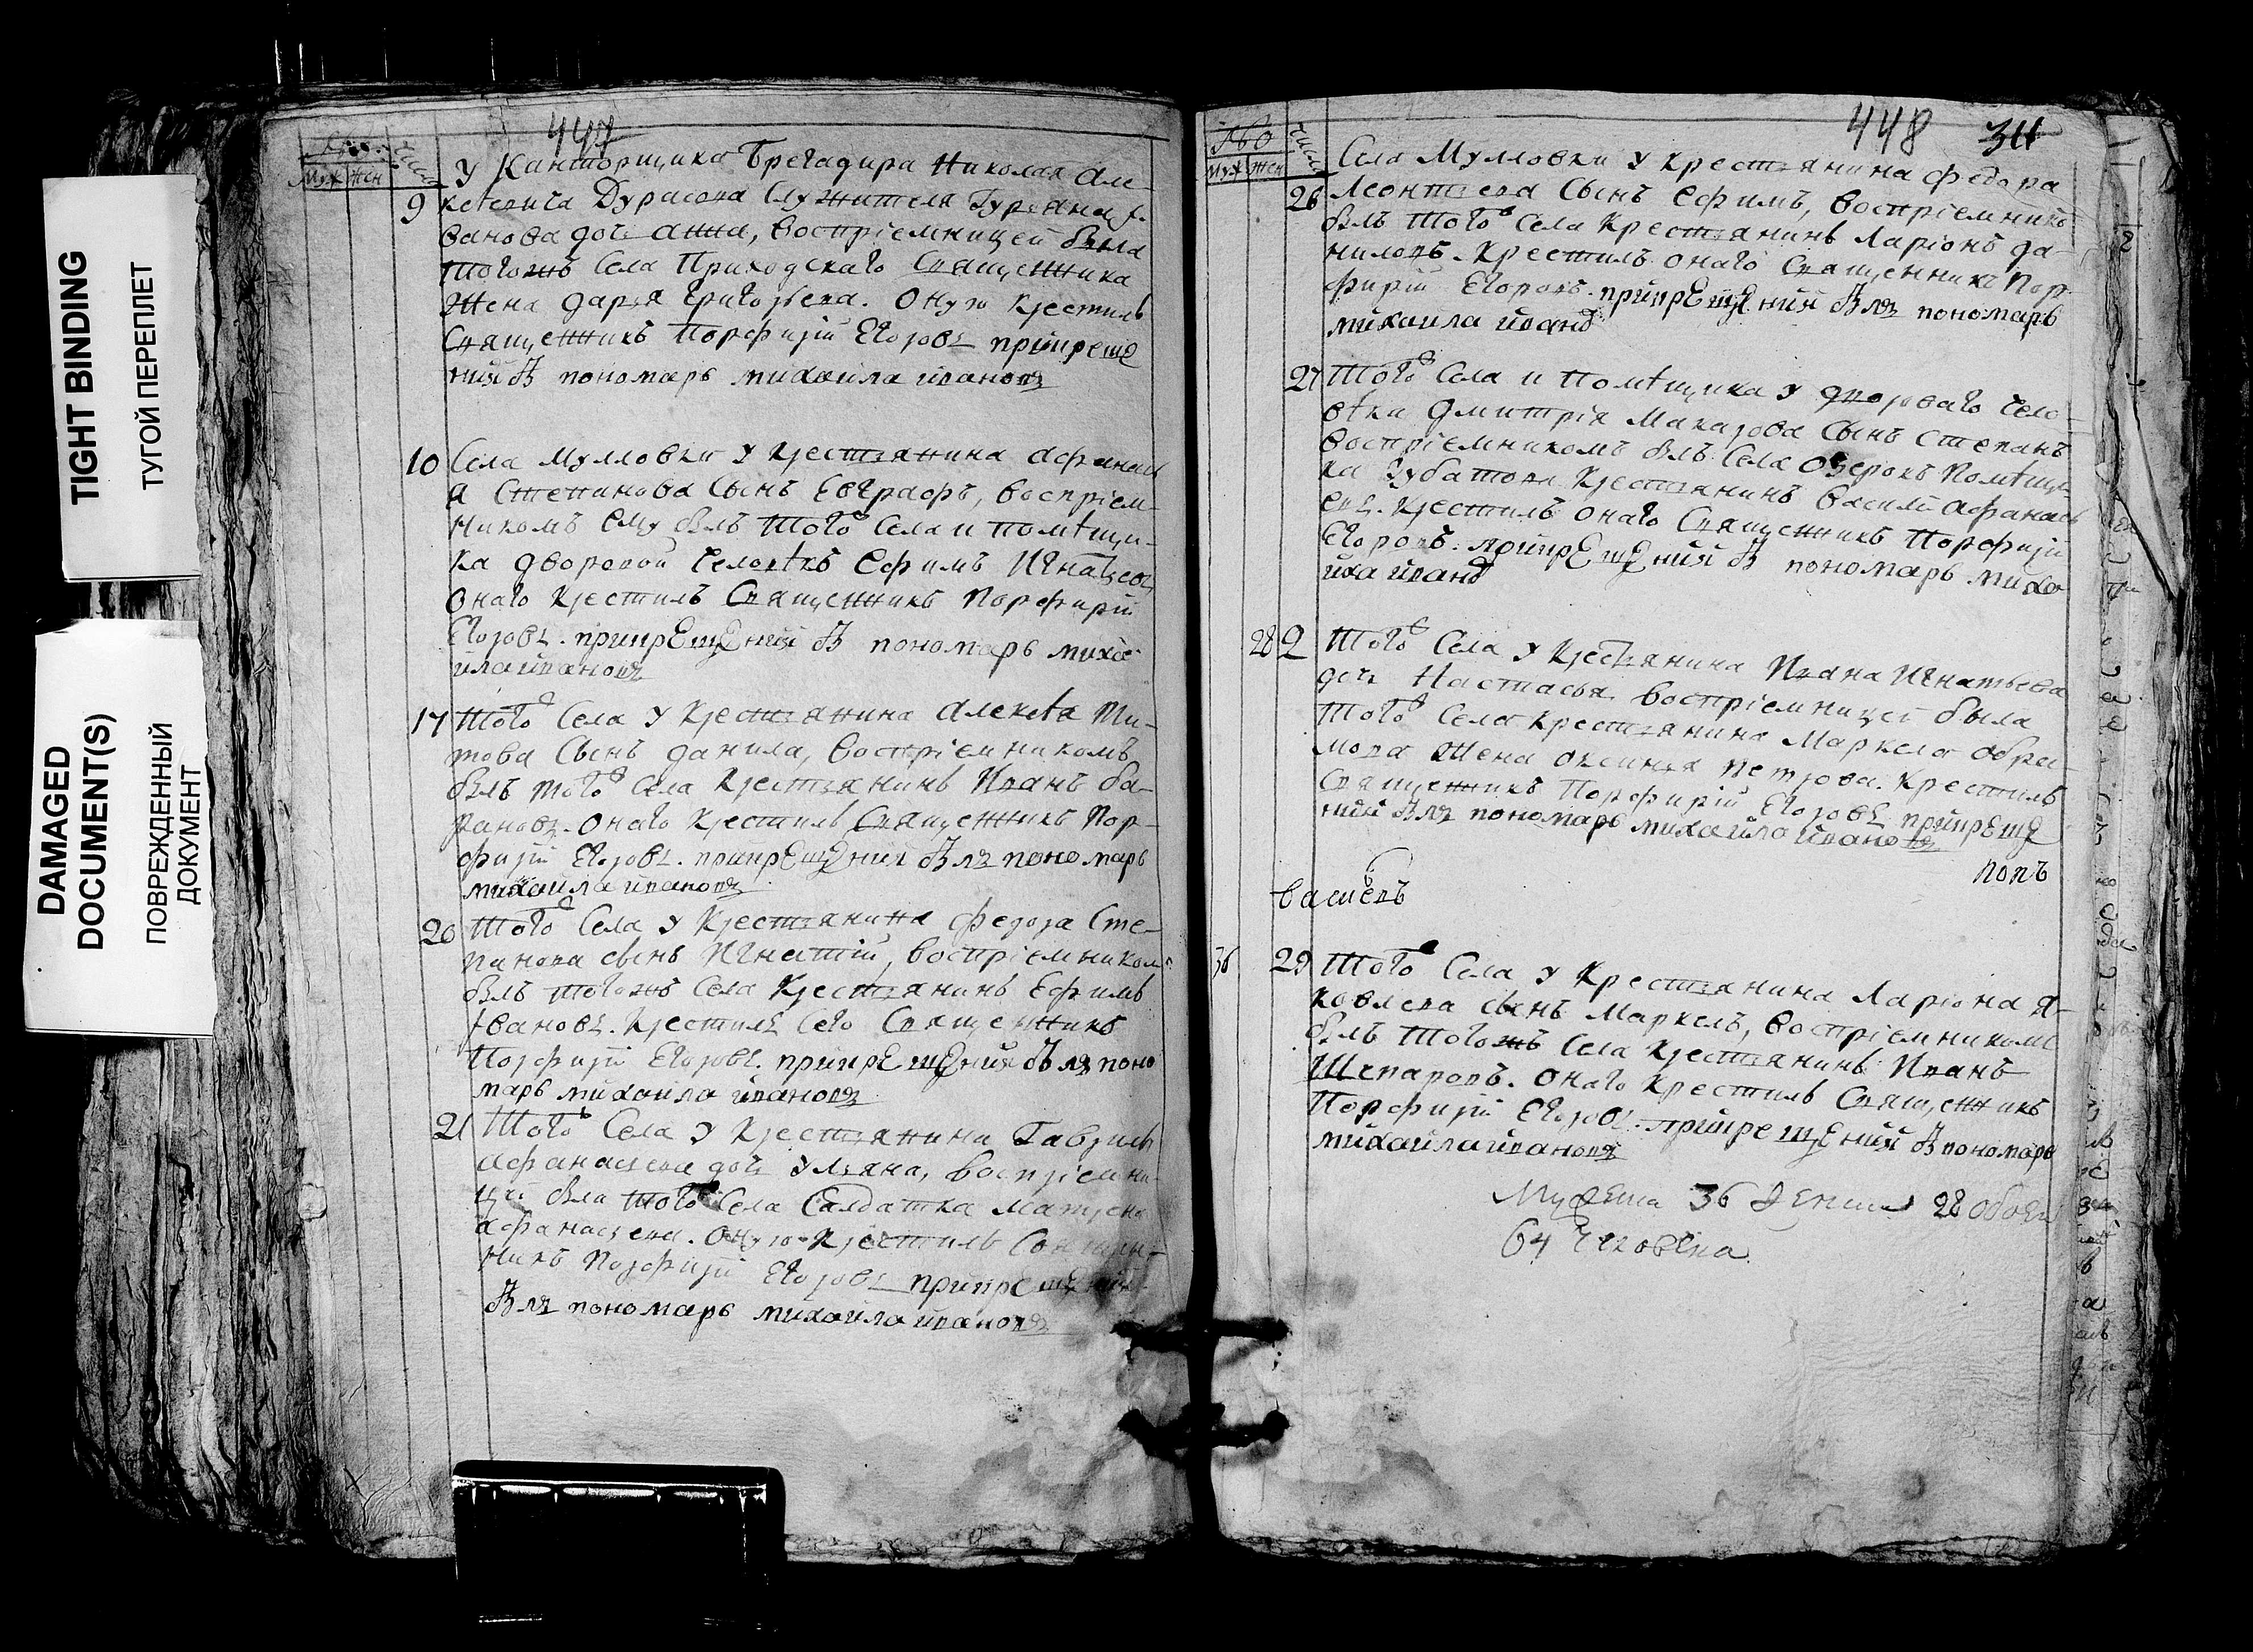 TIGHT BINDING
ТУГОЙ ПЕРЕПЛЕТ
DAMAGED
DOCUMENT(S)
ПОВРЕЖДЕННЫЙ
ДОКУМЕНТ
447
Муж Жен
У Канторщика Брегадира Николая Але-
9 кѣевича Дурасова Служителя І-
ванова дочь Анна, воспріемницей была
тогожъ Села Приходскаго Священника
Жена Дарья Григорьева. Оную крестилъ
Священникъ Порфирій Егоровъ прикреще
ніи пономарь михаила ивановъ
10 Села Мулловки у крестьянина Афанась
я Степанова Сынъ Евграфъ, воспріем-
никомъ ему былъ того Села и помѣщи-
ка дворовой человѣкъ Ефимъ Игнатьевъ
Онаго крестилъ Священникъ Порфирій
Егоровъ. прикрещеніи пономарь миха
ила ивановъ
17 того Села у крестьянина Алексѣя Ти-
това Сынъ Данила, воспріемникомъ
былъ того Села крестьянинъ Иванъ Ба-
рановъ. Онаго крестилъ Священникъ Пор-
фирій Егоровъ. прикрещеніи былъ пономарь
михаила ивановъ
20 того Села у крестьянина Федора Сте-
панова сынъ Игнатій, воспріемникомъ
былъ тогожъ Села крестьянинъ Ефимъ
Івановъ. крестилъ Сего Священникъ
Порфирій Егоровъ. прикрещеніи былъ поно
марь михаила ивановъ
21 того Села у крестьянина Гаврилы
Афанасьева дочь Ульяна, воспріемни-
цей была того Села Салдатка Матрена
Афанасьева. Оную крестилъ Священ-
никъ Порфирій Егоровъ прикрещеніи
былъ пономарь михаила ивановъ
448 34
Муж Жен Числа
Села Мулловки у крестьянина Федора
26 Леонтьева Сынъ Ефимъ, воспріемникъ
былъ того Села крестьянинъ Ларіонъ Да-
ниловъ. Крестилъ онаго Священникъ Пор-
фирій Егоровъ. прикрещеніи былъ пономарь
михаила иванов
27 того Села и Помѣщика у двороваго чело-
вѣка Дмитрія Макарова Сынъ Степанъ
воспріемникомъ былъ Села Озерокъ Помѣщи-
ка Зубатова Крестьянинъ Василій Афанась
евъ. крестилъ онаго Священникъ Порфирій
Егоровъ. прикрещеніи пономарь миха
ила иванов
28 2 того Села у крестьянина Ивана Игнатьева
дочь Настасья воспріемницей была
того Села крестьянина Маркела Абра-
мова Жена Оксинья Петрова. Крестилъ
Священникъ Порфирій Егоровъ прикреще
ніи былъ пономарь михаила ивановъ
попъ
36 29 того Села у крестьянина Ларіона Я-
ковлева сынъ Маркелъ, воспріемникомъ
былъ тогожъ Села крестьянинъ Иванъ
Шепаровъ. Онаго крестилъ Священникъ
Порфирій Егоровъ. прикрещеніи пономарь
михаила ивановъ
Мужеска 36 Женска 28 обоего
64 человека